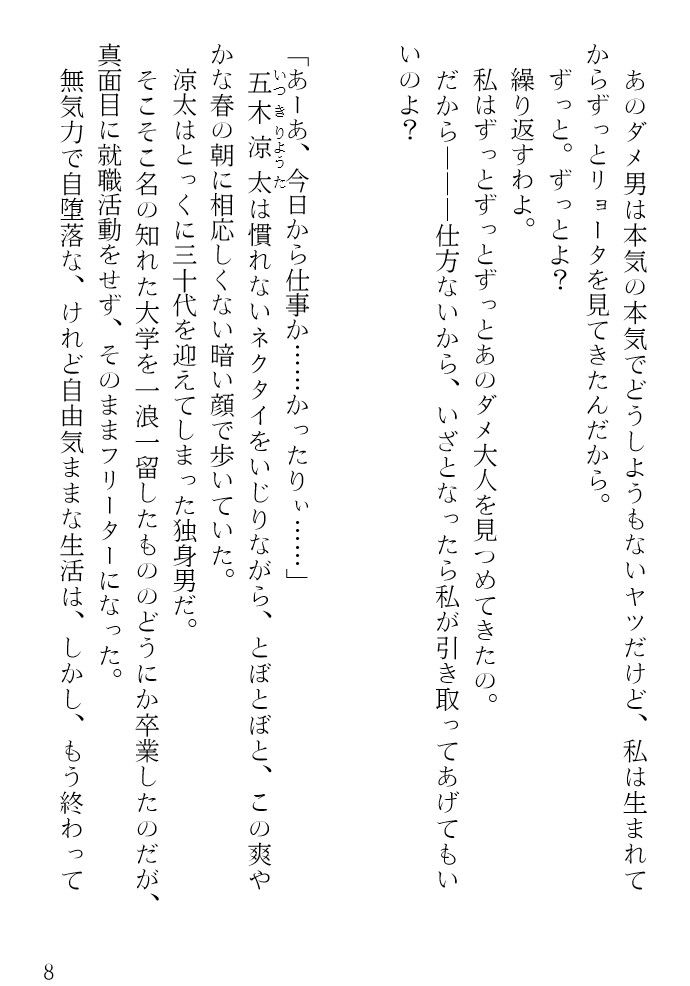 あのダメ男は本気の本気でどうしようもないヤツだけど、私は生まれて
からずっとリョータを見てきたんだから。
ずっと。ずっとよ?
繰り返すわよ。
私はずっとずっとずっとあのダメ大人を見つめてきたの。
だから―――仕方ないから、いざとなったら私が引き取ってあげてもい
いのよ?
「あーあ、今日から仕事か……かったりぃ……」
五木涼太は慣れないネクタイをいじりながら、とぼとぼと、この爽や
いつきりょうた
かな春の朝に相応しくない暗い顔で歩いていた。
涼太はとっくに三十代を迎えてしまった独身男だ。
そこそこ名の知れた大学を一浪一留したもののどうにか卒業したのだが、
真面目に就職活動をせず、そのままフリーターになった。
無気力で自堕落な、けれど自由気ままな生活は、しかし、もう終わって
8